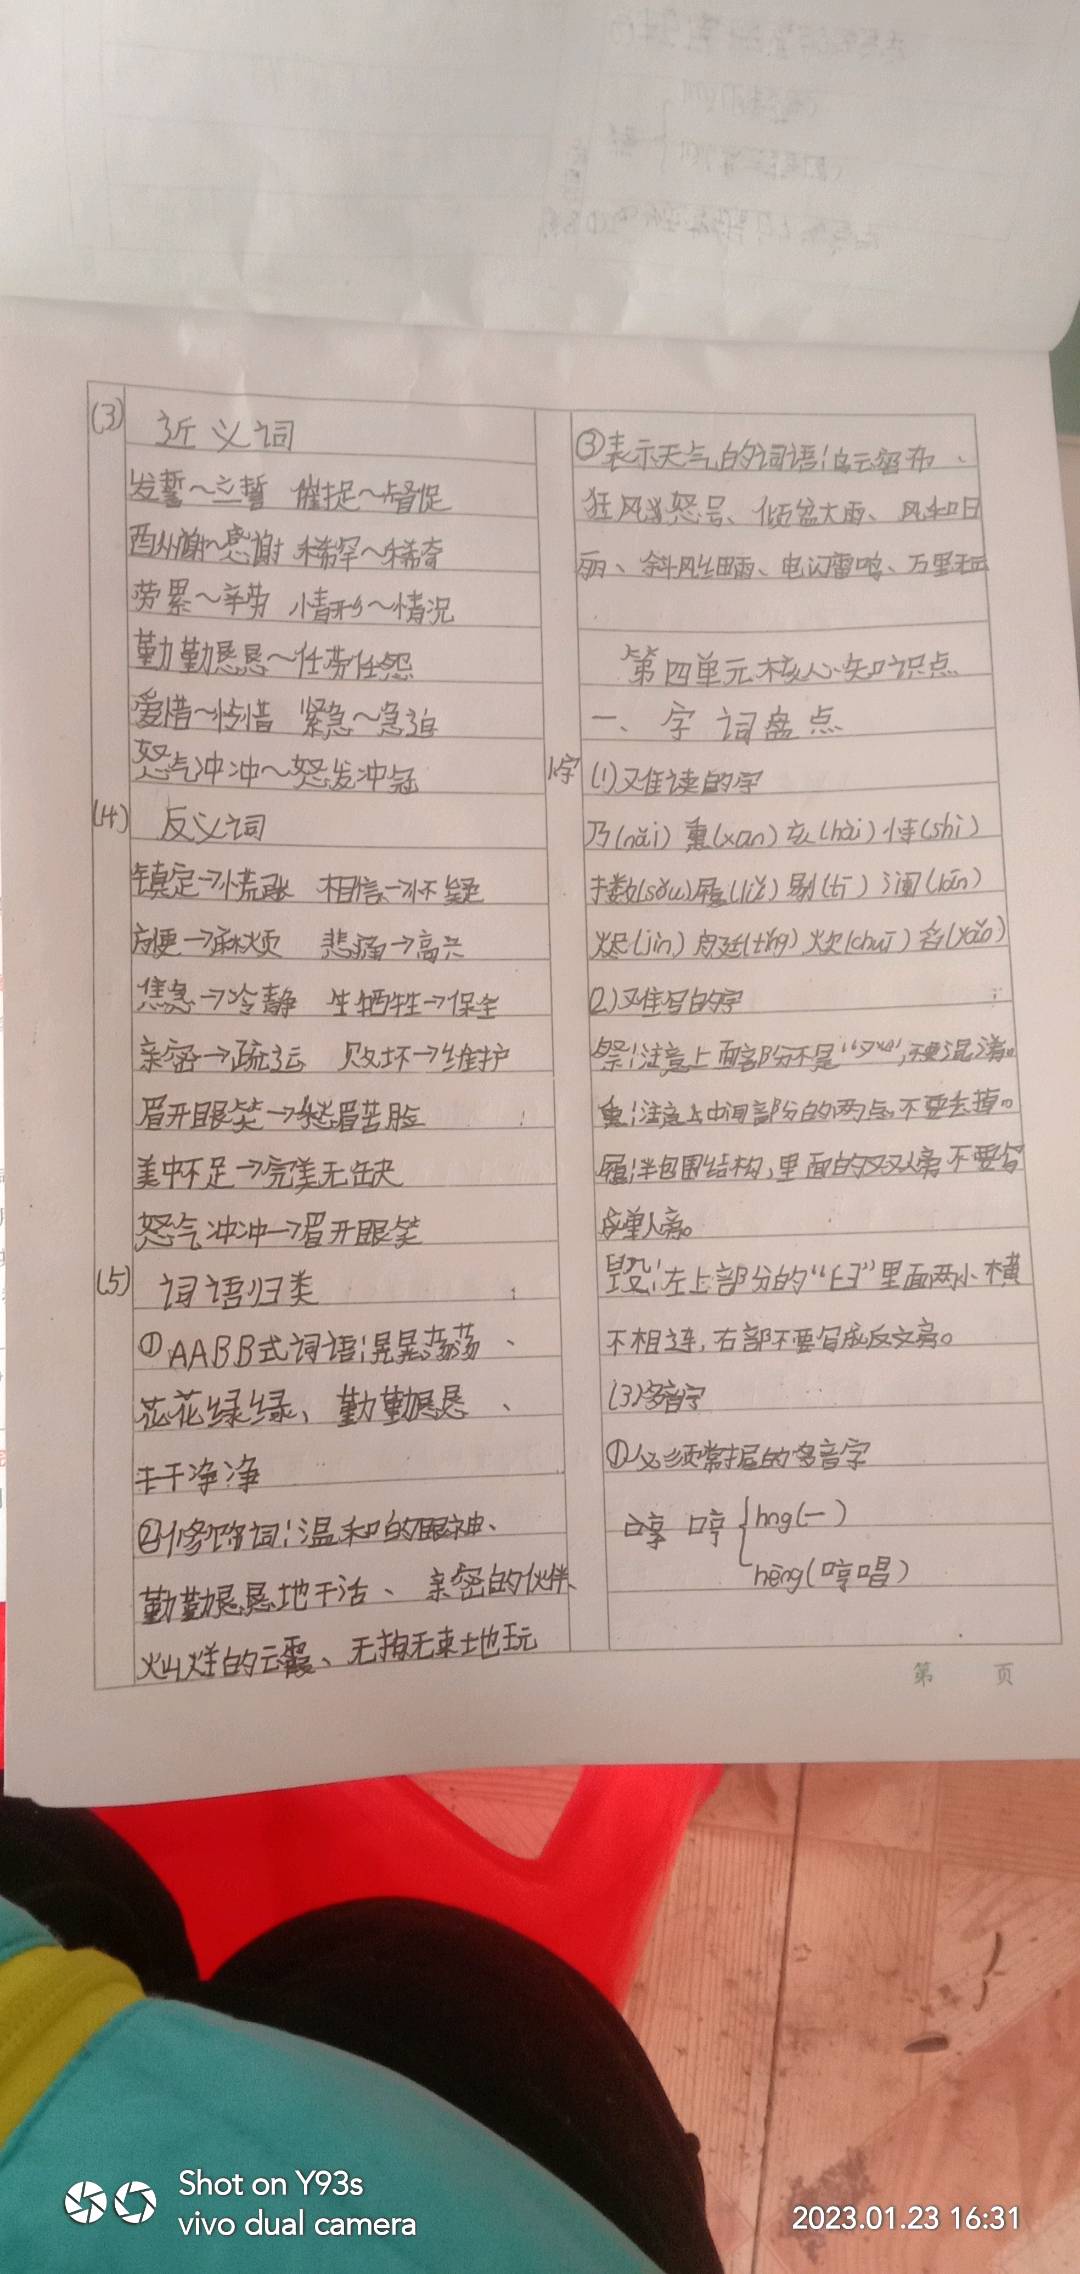 (3) 近义词
发誓～立誓 催捉～督促
酬谢～感谢 稀罕～稀奇
劳累～辛劳 情形～情况
勤勤恳恳～任劳任怨
爱惜～怜惜 紧急～急迫
怒气冲冲～怒发冲冠
(4) 反义词
镇定→慌张 相信→怀疑
方便→麻烦 悲痛→高兴
焦急→冷静 牺牲→保全
亲密→疏远 败坏→维护
眉开眼笑→愁眉苦脸
美中不足→完美无缺
怒气冲冲→眉开眼笑
(5) 词语归类
①AABB式词语:晃晃荡荡、
花花绿绿、勤勤恳恳、
干干净净
②修饰词:温和的眼神、
勤勤恳恳地干活、亲密的伙伴、
灿烂的云霞、无拘无束地玩
③表示天气的词语:乌云密布、
狂风怒号、倾盆大雨、风和日
丽、斜风细雨、电闪雷鸣、万里无云
第四单元核心知识点
一、字词盘点
1.字 (1)难读的字
乃(nǎi) 熏(xūn) 亥(hài) 恃(shì)
擞(sǒu) 履(lǚ) 剔(tī) 阄(jiū)
烬(jìn) 庭(tíng) 炊(chuī) 舀(yǎo)
(2)难写的字
祭:注意上面部分不是“癶”,不要混淆。
熏:注意上中间部分的两点,不要去掉。
履:半包围结构,里面的双人旁不要写
成单人旁。
毁:左上部分的“臼”里面两小横
不相连,右部不要写成反文旁。
(3)多音字
①必须掌握的多音字
哼 hng(一)
hēng(哼唱)
第 页
Shot on Y93s
vivo dual camera
2023.01.23 16:31